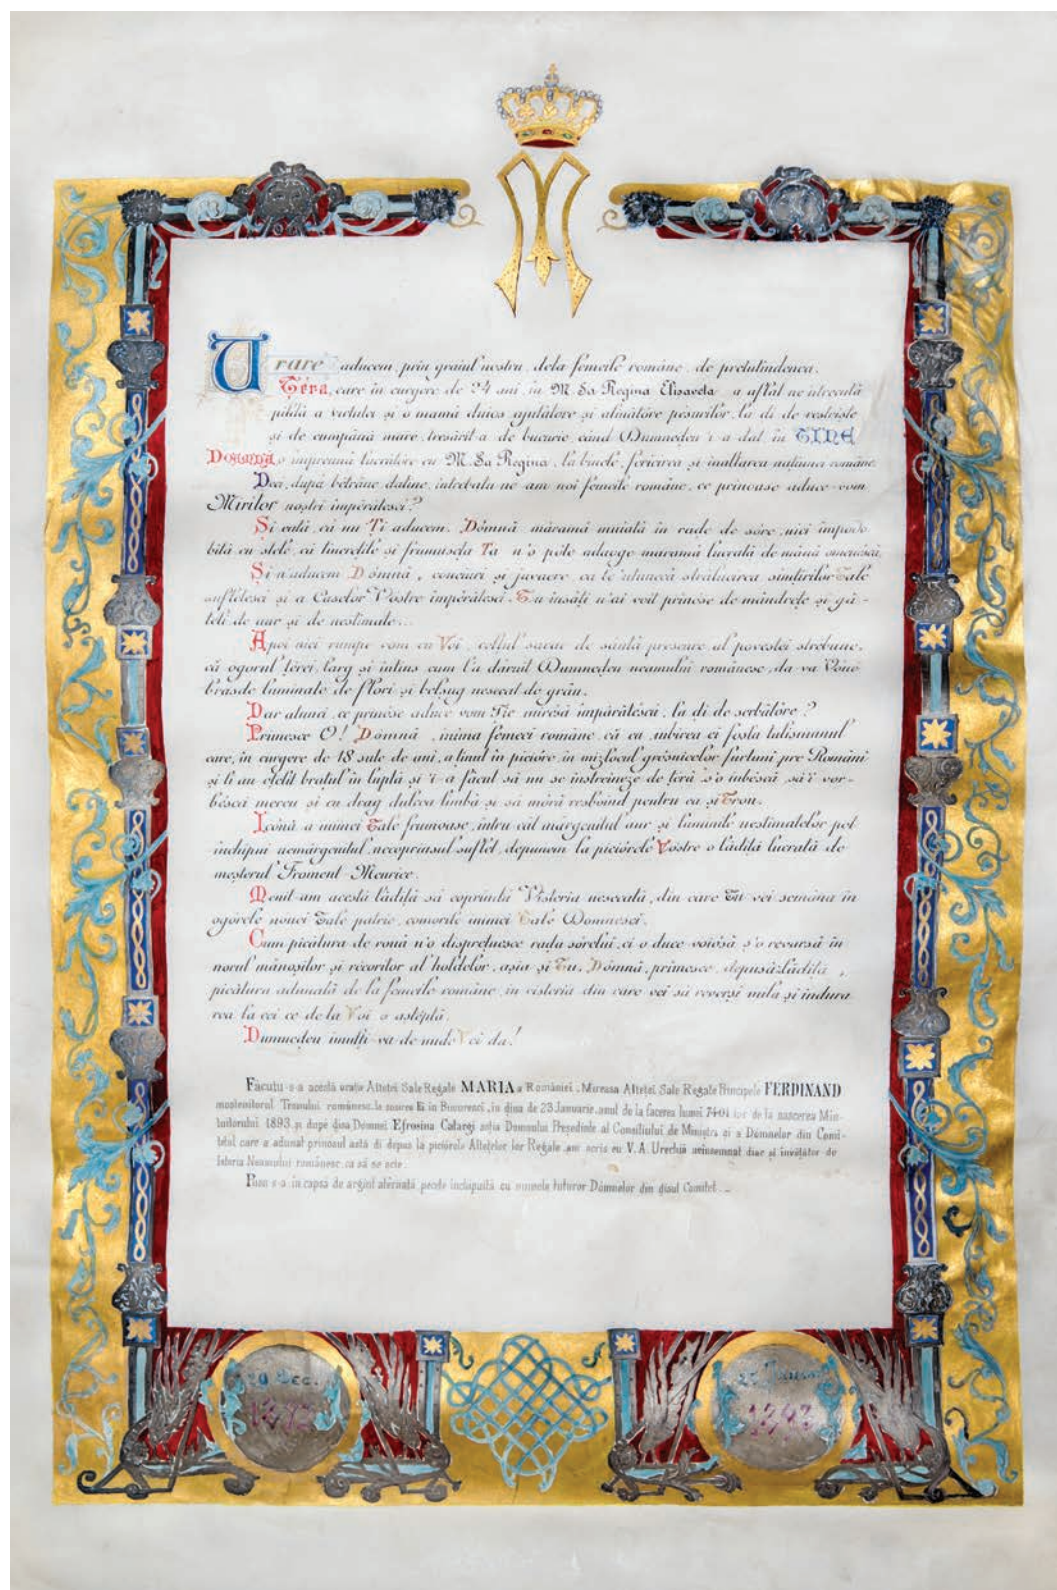 Urare aducem, prin graiul nostru, dela femeile române, de pretutindenea.
Țéra, care în curgere de 24 ani, în M. Sa Regina Elisaveta a aflat ne'ntrecută
pildă a virtuței și o mamă duiós ajutătóre și alinătóre păsurilor, la di de restriște
și de cumpănă mare, tresărit-a de bucurie când Dumnedeu i-a dat în TINE
DÓMNĂ, o împreună lucrătóre cu M. Sa Regina, la binele, fericirea și inalțarea națiunei române.
Deci, după bětrâne datine, intrebatu-ne-am noi femeile române, ce prinoase aduce-vom
Mirilor noștri impěrătesci?
Și eată, că nu Ți aducem, Dómnă, măramă muiată în rade de sóre, nici împodo
bită cu stele, că tinerețile și frumuseța Ta n'o póte adaoge mărama lucrată de mână omenéscă.
Și n'aducem Dómnă, conciuri și juvaere că le'ntunecă strălucirea simțirilor Tale
sufletesci și a Caselor Vostre impěrătesci. Tu insăți n'ai voit prinóse de mândrețe și gă-
teli de aur și de nestimate...
Apoi nici rumpe-vom cu Voi, colțul sacat de sântă presure al povestei strěbune,
că ogorul țěrei, larg și intins cum l'a dăruit Dumnedeu neamului românesc, da-va Voue
brasde luminate de flori și belșug nesecat de grâu.
Dar atunci, ce prinóse aduce-vom Ție mirésă impărătéscă, la di de serbătóre?
Primesce O! Dómnă, inima femeei române, că cu iubirea ei fost-a talismanul
care, in curgere de 18 sute de ani, a ținut în picióre în mijlocul grósnicelor furtuni pre Români
și li-au oțelit brațul în luptă și i-a făcut să nu se instreineze de țéră s'o iubéscă, să'i vor-
béscă mereu și cu drag dulcea limbă și să móră resboind pentru ea și Tron.
Icónă a inimei Tale frumoase, intru cât mărgenitul aur și luminile nestimatelor pot
inchipui nemărgenitul, necoprinsul suflet, depunem la piciórele Vostre o lădiță lucrată de
meșterul Froment-Meurice.
Menit-am acéstă lădiță să coprindă Visteria nesecată, din care Tu vei semăna în
ogórele nouei Tale patrie, comorile inimei Tale Domnesci.
Cum picătura de rouă n'o disprețuesce rada sórelui, ci o duce voiósă s'o reverse în
norul mănoșilor și recorilor al holdelor, așia și Tu, Dómnă, primesce, depusă'n lădiță,
picătura adunată de la femeile române, în visteria din care vei să reverși mila și indura
rea la cei ce de la Voi o aștéptă.
Dumnedeu inmulți-va de unde Vei da!
Făcutu-s-a acestă urație Alteței Sale Regale MARIA a României, Mireasa Alteței Sale Regale Principele FERDINAND
moștenitorul Tronului românesc, la sosirea Ei în Bucuresci, în diua de 23 Januarie, anul de la facerea lumei 7401 iar de la nascerea Mân-
tuitorului 1893, și dupe disa Dómnei Efrosina Catargi soția Domnului Președinte al Consiliului de Miniștri și a Dómnelor din Comi-
tetul care a adunat prinosul astă-di depus la piciórele Altețelor lor Regale, am scris eu V. A. Urechiă neinsemnat diac și invěțător de
Istoria Neamului românesc, ca să se scie.
Pus-s-a în capsă de argint atârnată pecete inchipuită cu numele tuturor Dómnelor din disul Comitet._
29 Dec.
1892
1893